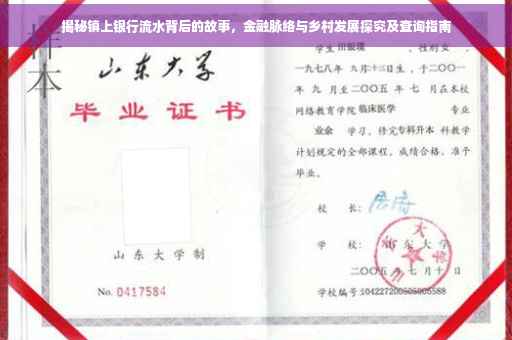 揭秘镇上银行流水背后的故事，金融脉络与乡村发展探究及查询指南
样本
山东大学
毕业证书
山东大学制
No. 0417584
学生 性别女，
一九七八年 九月十三日生，于二〇〇一
年 九 月至二〇〇五 年 七 月在本校
网络教育学院 临床医学 专业
业余 学习，修完专科升本 科教学
计划规定的全部课程，成绩合格，准予
毕业。
校 长：
学 校：山东大学
二〇〇五年七月十日
学校编号:104227200505005588